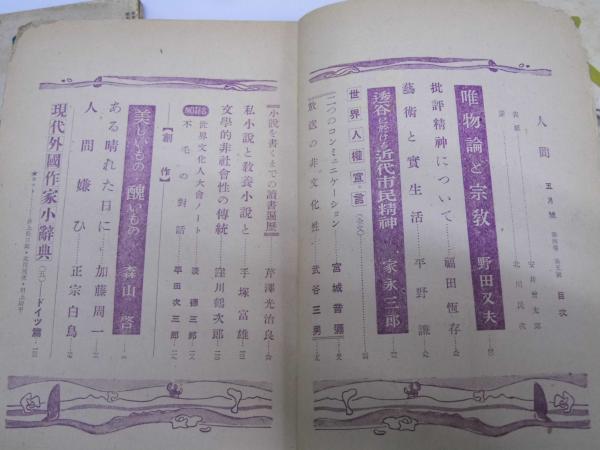 人間 五月號 目次
安井曾太郎
北川民次
唯物論と宗教 野田又夫
批評精神について 福田恆存
藝術と實生活 平野謙
透谷に於ける近代市民精神 家永三郎
世界人權宣言(全文)
二つのコンミュニケーション 宮城音彌
放送の非文化性 武谷三男
小説を書くまでの讀書遍歴 芹澤光治良
私小説と教養小説と 手塚富雄
文學的非社會性の傳統 窪川鶴次郎
世界文化人大會ノート 淡德三郎
不毛の對話 平田次三郎
【創作】
美しいもの醜いもの 森山啓
ある晴れた日に 加藤周一
人間嫌ひ 正宗白鳥
現代外國作家小辭典(五)ドイツ篇